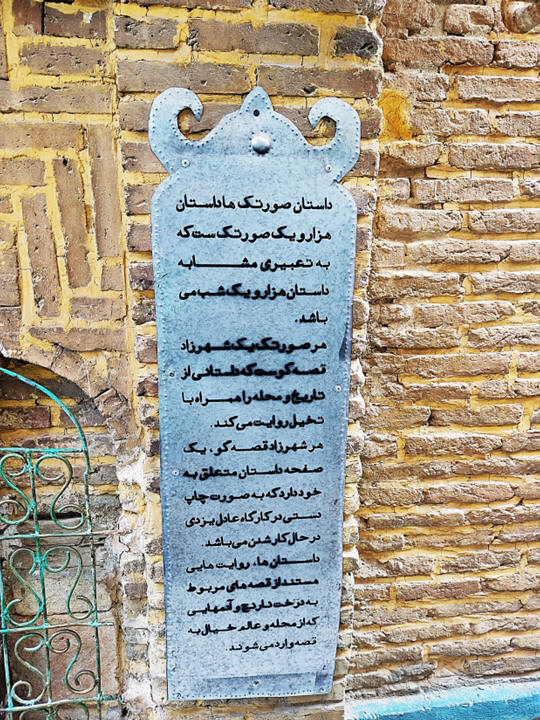 داستان صورتک ها داستان
هزار و یک صورتک ست که
به تعبیری مشابه
داستان هزار و یک شب می
باشد.
هر صورتک یک شهرزاد
قصه گوست که داستانی از
تاریخ و محله را همراه با
تخیل روایت می کند.
هر شهرزاد قصه گو، یک
صفحه داستان متعلق به
خود دارد که به صورت چاپ
دستی در کارگاه عادل یزدی
در حال کار شدن می باشد
داستان ها، روایت هایی
هستند از قصه های مربوط
به درخت نارنج و آدمهایی
که از محله و عالم خیال به
قصه وارد می شوند.